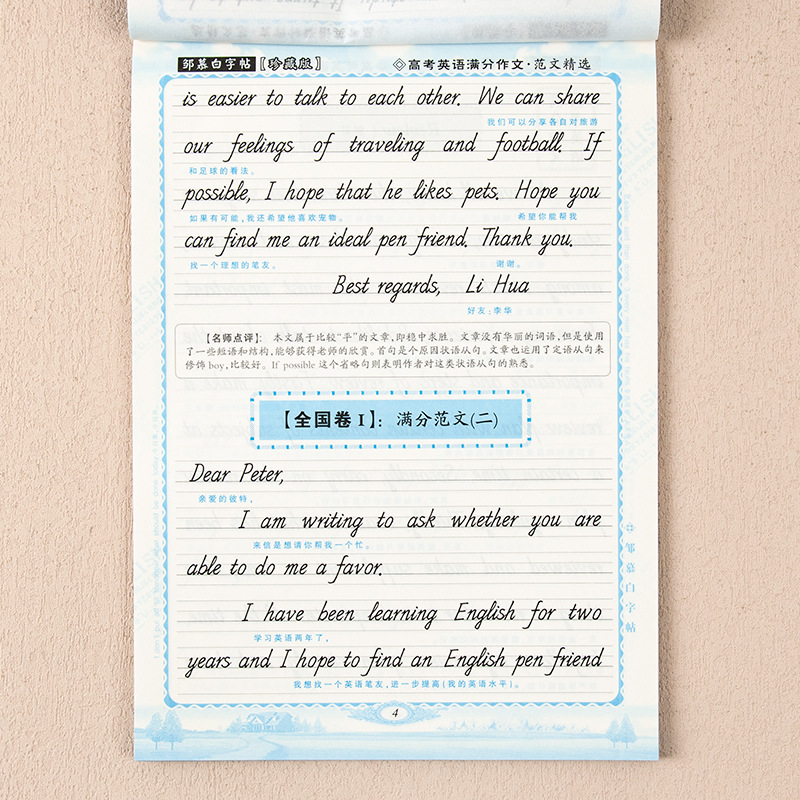 邹慕白字帖【珍藏版】 ◇高考英语满分作文·范文精选
is easier to talk to each other. We can share
我们可以分享各自对旅游
our feelings of traveling and football. If
和足球的看法。
possible, I hope that he likes pets. Hope you
如果有可能,我还希望他喜欢宠物。 希望你能帮我
can find me an ideal pen friend. Thank you.
找一个理想的笔友。 谢谢。
Best regards, Li Hua
好友:李华
【名师点评】: 本文属于比较“平”的文章,即稳中求胜。文章没有华丽的词语,但是使用
了一些短语和结构,能够获得老师的欣赏。首句是个原因状语从句。文章也运用了定语从句来
修饰 boy,比较好。If possible 这个省略句则表明作者对这类状语从句的熟悉。
【全国卷 I】: 满分范文(二)
Dear Peter,
亲爱的彼特,
I am writing to ask whether you are
来信是想请你帮我一个忙。
able to do me a favor.
I have been learning English for two
学习英语两年了,
years and I hope to find an English pen friend
我想找一个英语笔友,进一步提高(我的英语水平)。
◇邹慕白字帖
4